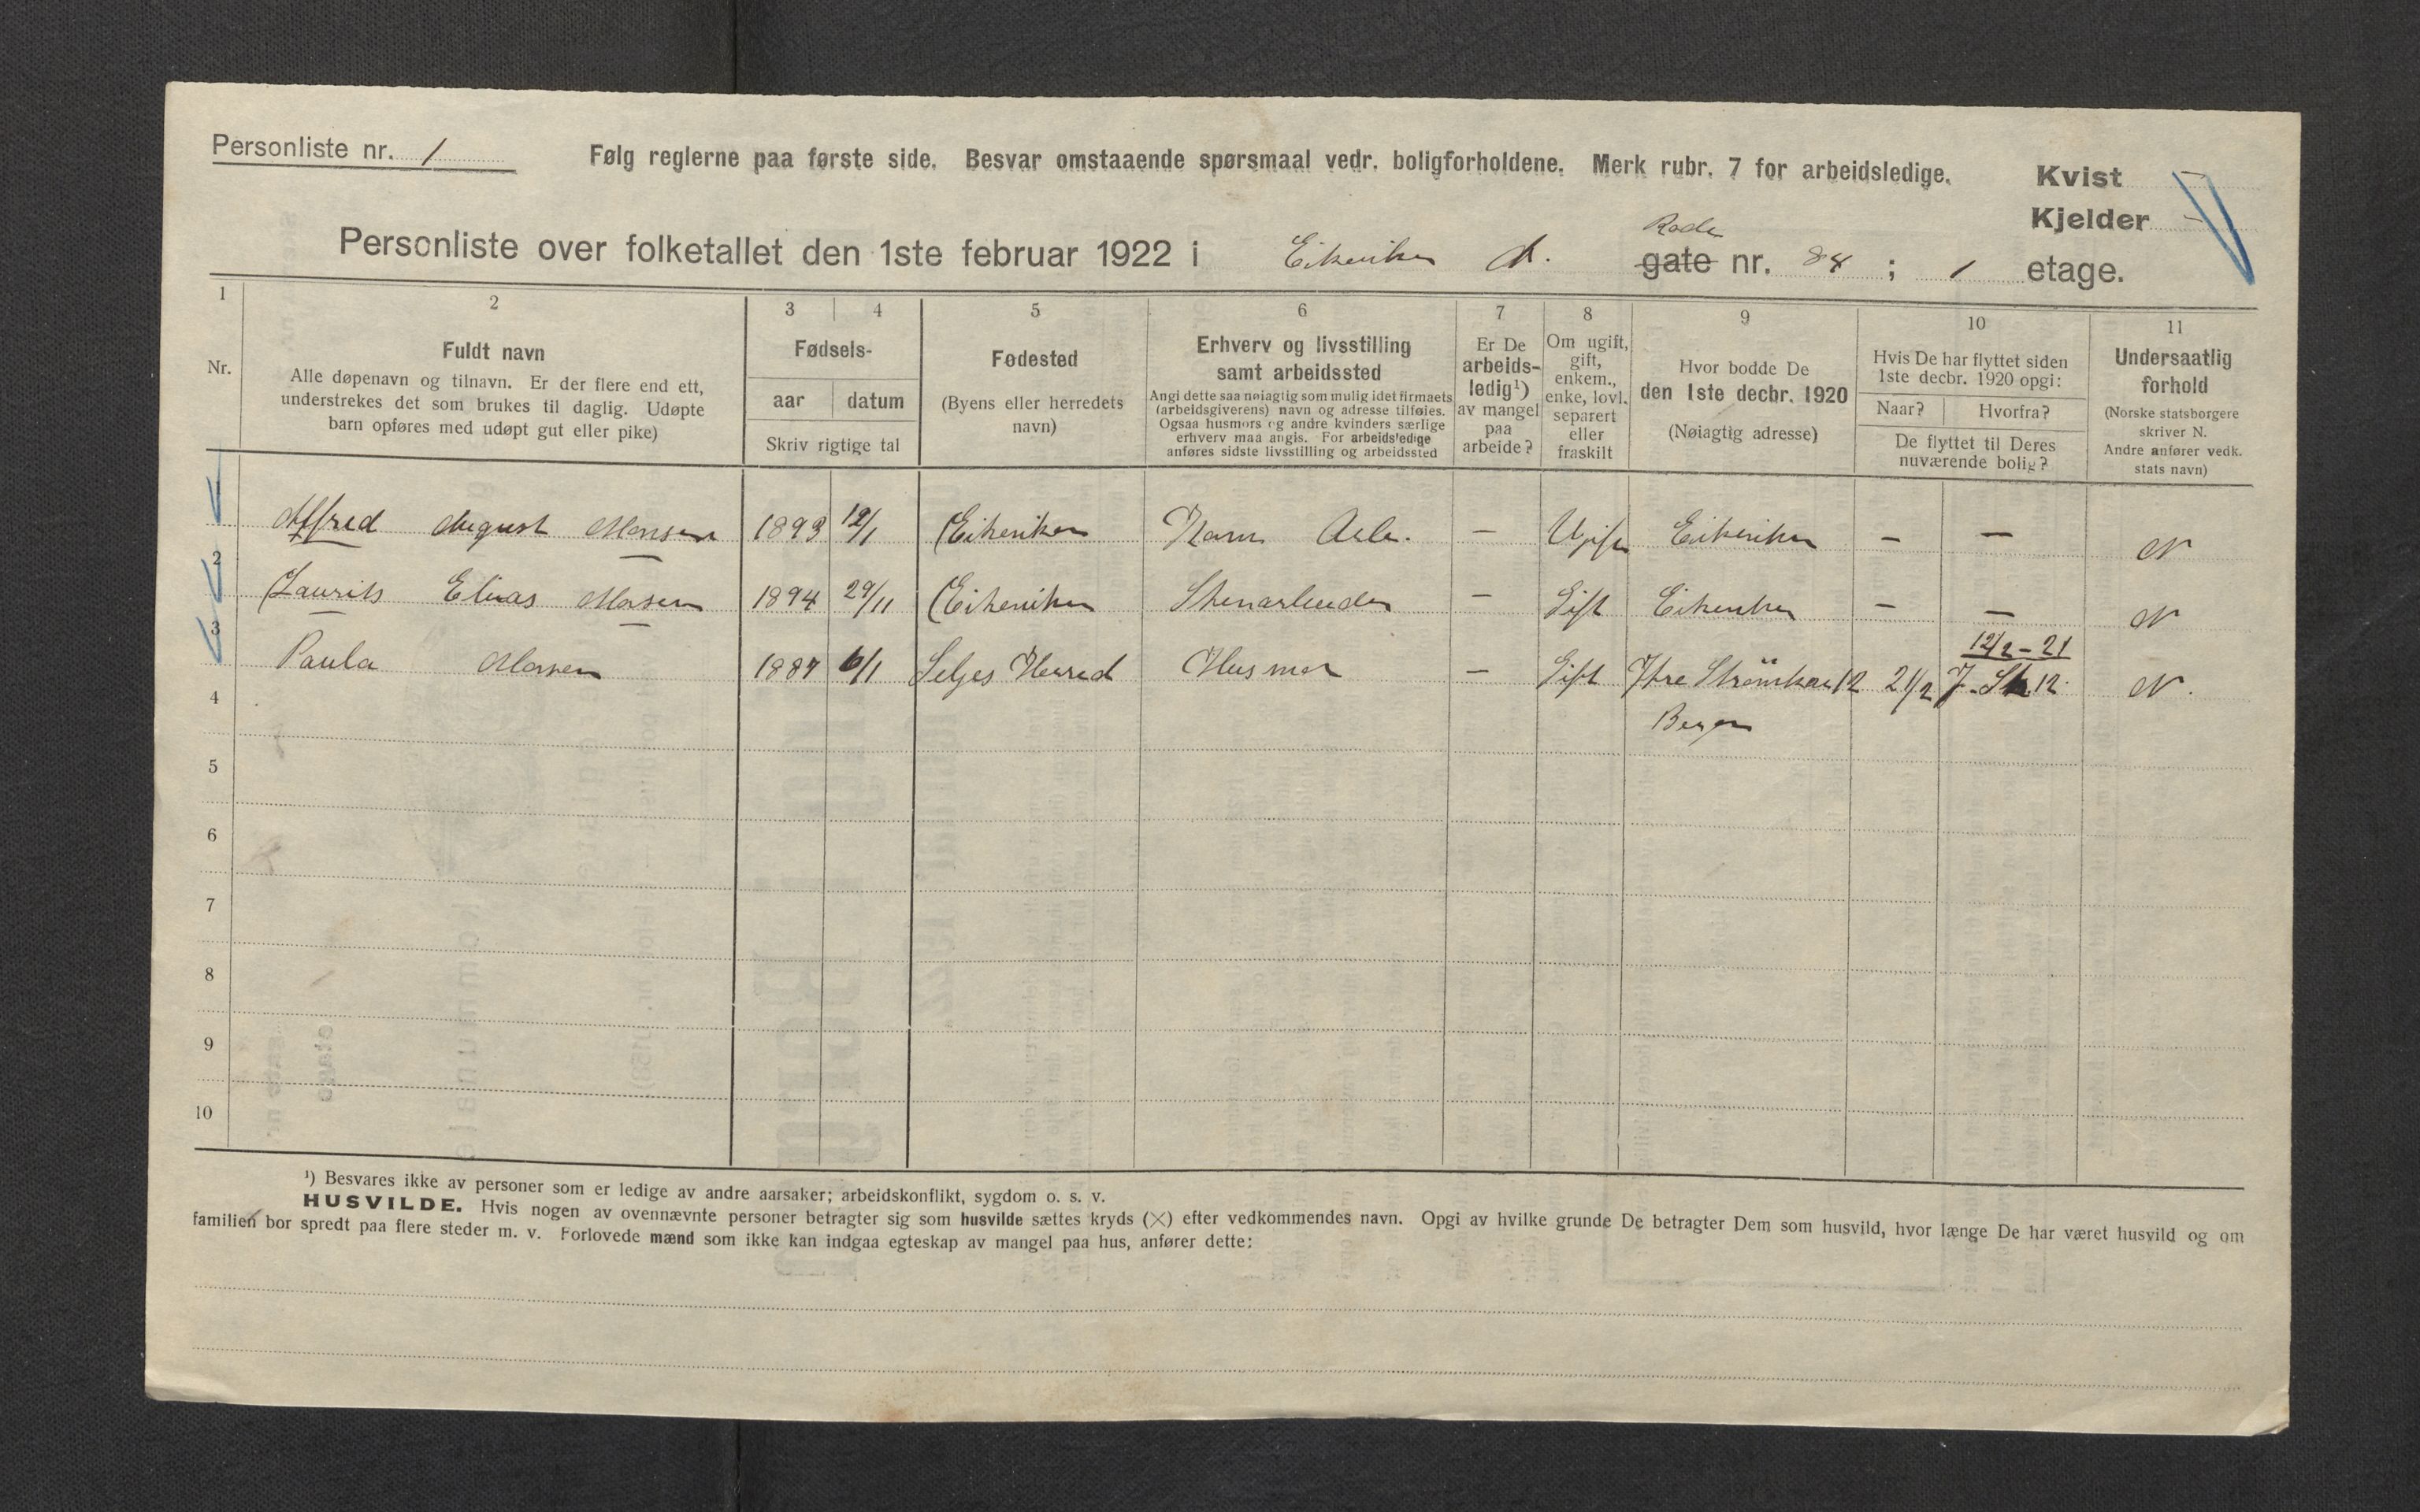 Personliste nr. 1
Følg reglerne paa første side. Besvar omstaaende spørsmaal vedr. boligforholdene. Merk rubr. 7 for arbeidsledige.
Kvist -
Kjelder -
Personliste over folketallet den 1ste februar 1922 i Eikeviken A. Rode gate nr. 84 ; 1 etage.
1 2 3 4 5 6 7 8 9 10 11
Nr.
Fuldt navn
Alle døpenavn og tilnavn. Er der flere end ett,
understrekes det som brukes til daglig. Udøpte
barn opføres med udøpt gut eller pike)
Fødsels-
aar datum
Skriv rigtige tal
Fødested
(Byens eller herredets
navn)
Erhverv og livsstilling
samt arbeidssted
Angi dette saa nøiagtig som mulig idet firmaets
(arbeidsgiverens) navn og adresse tilføies.
Ogsaa husmors og andre kvinders særlige
erhverv maa angis. For arbeidsledige
anføres sidste livsstilling og arbeidssted
Er De
arbeids-
ledig¹)
av mangel
paa
arbeide?
Om ugift,
gift,
enkem.,
enke, lovl.
separert
eller
fraskilt
Hvor bodde De
den 1ste decbr. 1920
(Nøiagtig adresse)
Hvis De har flyttet siden
1ste decbr. 1920 opgi:
Naar? Hvorfra?
De flyttet til Deres
nuværende bolig?
Undersaatlig
forhold
(Norske statsborgere
skriver N.
Andre anfører vedk.
stats navn)
1 Alfred August Monsen 1893 12/1 Eikeviken Kom. Arb. - Ugift Eikeviken - - N
2 Laurits Elias Monsen 1894 29/11 Eikeviken Stenarbeider - Gift Eikeviken - - N
12/2-21
3 Paula Monsen 1887 6/1 Seljes Herred Husmor - Gift Ytre Strømkai 12 21/2 Y. St. 12 N.
4 Bergen
5
6
7
8
9
10
¹) Besvares ikke av personer som er ledige av andre aarsaker; arbeidskonflikt, sygdom o. s. v.
HUSVILDE. Hvis nogen av ovennævnte personer betragter sig som husvilde sættes kryds (×) efter vedkommendes navn. Opgi av hvilke grunde De betragter Dem som husvild, hvor længe De har været husvild og om
familien bor spredt paa flere steder m. v. Forlovede mænd som ikke kan indgaa egteskap av mangel paa hus, anfører dette: